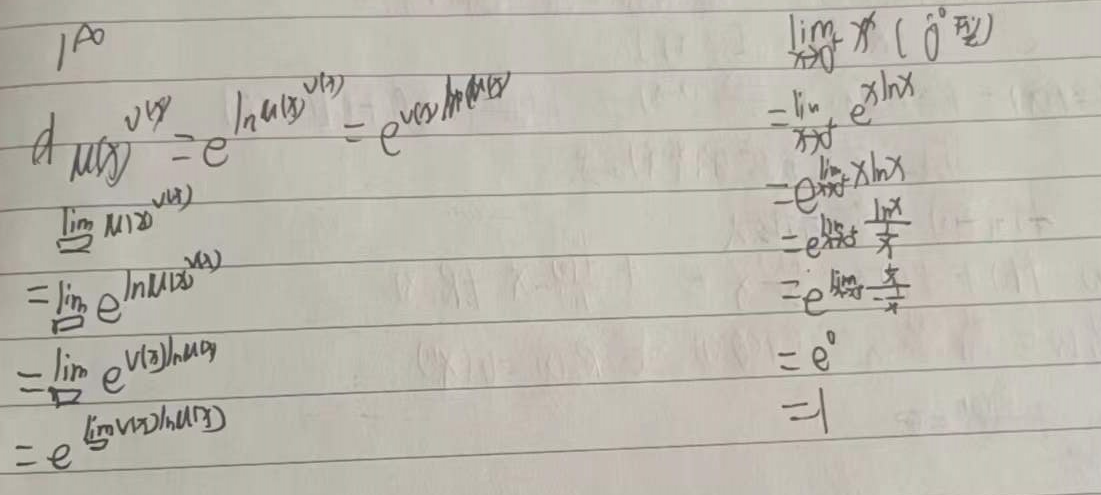 1^∞
d u(x)^{v(x)} = e^{ln u(x)^{v(x)}} = e^{v(x) ln u(x)}
lim u(x)^{v(x)}
= lim e^{ln u(x)^{v(x)}}
= lim e^{v(x) ln u(x)}
= e^{lim v(x) ln u(x)}
lim_{x→0^+} x^x ( 0^0 型)
= lim_{x→0^+} e^{x ln x}
= e^{lim_{x→0^+} x ln x}
= e^{lim_{x→0^+} \frac{ln x}{\frac{1}{x}}}
= e^{lim_{x→0^+}}
= e^0
= 1